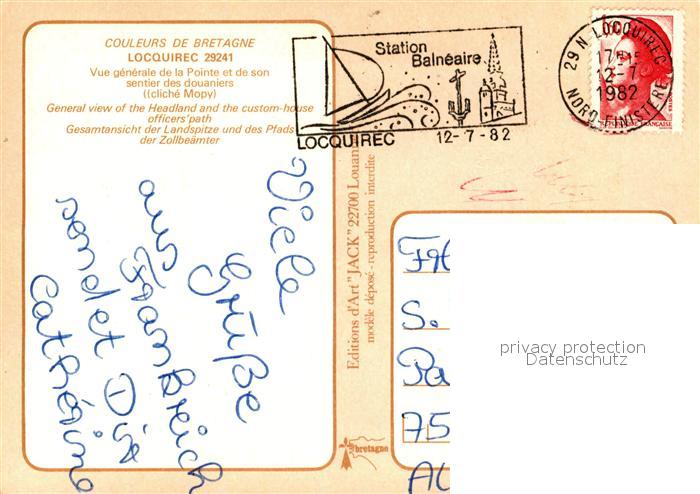 COULEURS DE BRETAGNE
LOCQUIREC 29241
Vue générale de la Pointe et de son
sentier des douaniers
(cliché Mopy)
General view of the Headland and the custom-house
officers'path
Gesamtansicht der Landspitze und des Pfads
der Zollbeämter
Station
Balnéaire
LOCQUIREC 12-7-82
29 N. LOCQUIREC
12-7
1982
NORD-FINISTERE
Viele
Grüße
aus
Frankreich
sendet Dir
Cathérine
Editions d'Art "JACK" 22700 Louan
modèle déposé - reproduction interdite
bretagne
S.
Pa
75
privacy protection
Datenschutz